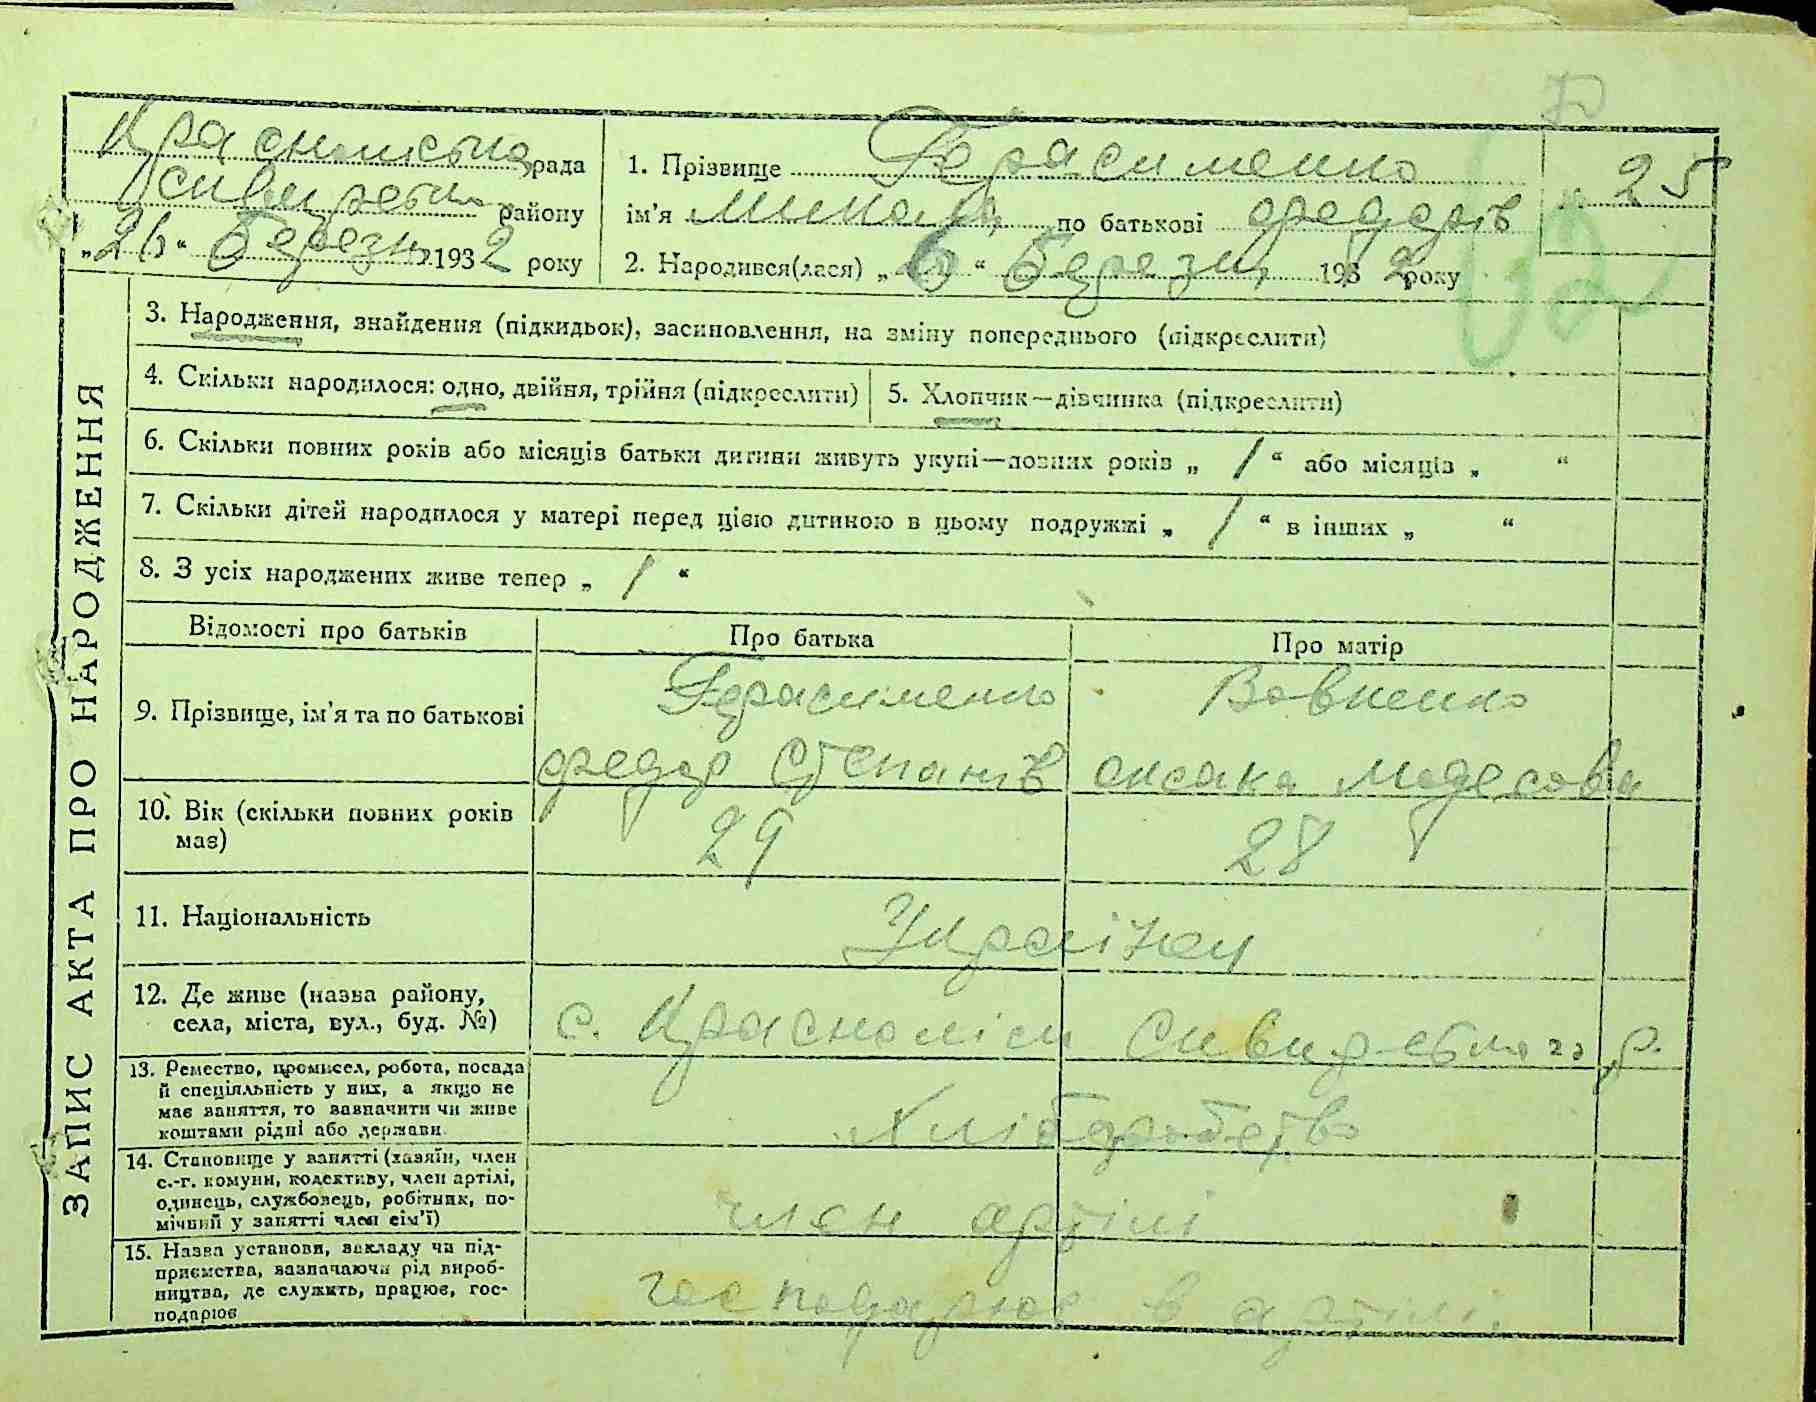 Краснольська рада
Сквирського району
„26“ Березня 1932 року
1. Прізвище Герасименко
ім'я Микола по батькові Федорів
2. Народився(лася) „ “ Березня 1932 року
№ 25
62
ЗАПИС АКТА ПРО НАРОДЖЕННЯ
3. Народження, знайдення (підкидьок), засиновлення, на зміну попереднього (підкреслити)
4. Скільки народилося: одно, двійня, трійня (підкреслити)
5. Хлопчик—дівчинка (підкреслити)
6. Скільки повних років або місяців батьки дитини живуть укупі—повних років „ / “ або місяців „ “
7. Скільки дітей народилося у матері перед цією дитиною в цьому подружжі „ / “ в інших „ “
8. З усіх народжених живе тепер „ / “
Відомості про батьків
Про батька
Про матір
9. Прізвище, ім'я та по батькові
Герасименко
Федор Степанів
Вовкенко
Оксана
10. Вік (скільки повних років
має)
29
28
11. Національність
Українці
12. Де живе (назва району,
села, міста, вул., буд. №)
с. Краснолісн Сквирського р.
13. Ремество, промисел, робота, посада
й спеціяльність у них, а якщо не
має заняття, то зазначити чи живе
коштами рідні або держави
Хліборобство
14. Становище у занятті (хазяїн, член
с.-г. комуни, колективу, член артілі,
одинець, службовець, робітник, по-
мічний у занятті член сім'ї)
член артілі
15. Назва установи, закладу чи під-
приємства, зазначаючи рід вироб-
ництва, де служить, працює, гос-
подарює
господарює в артілі.